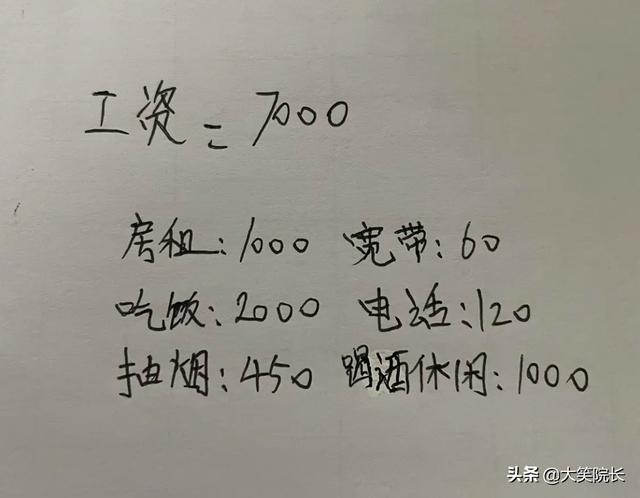 工资=7000
房租:1000 宽带:60
吃饭:2000 电话:120
抽烟:450 喝酒休闲:1000
头条 @大笑院长